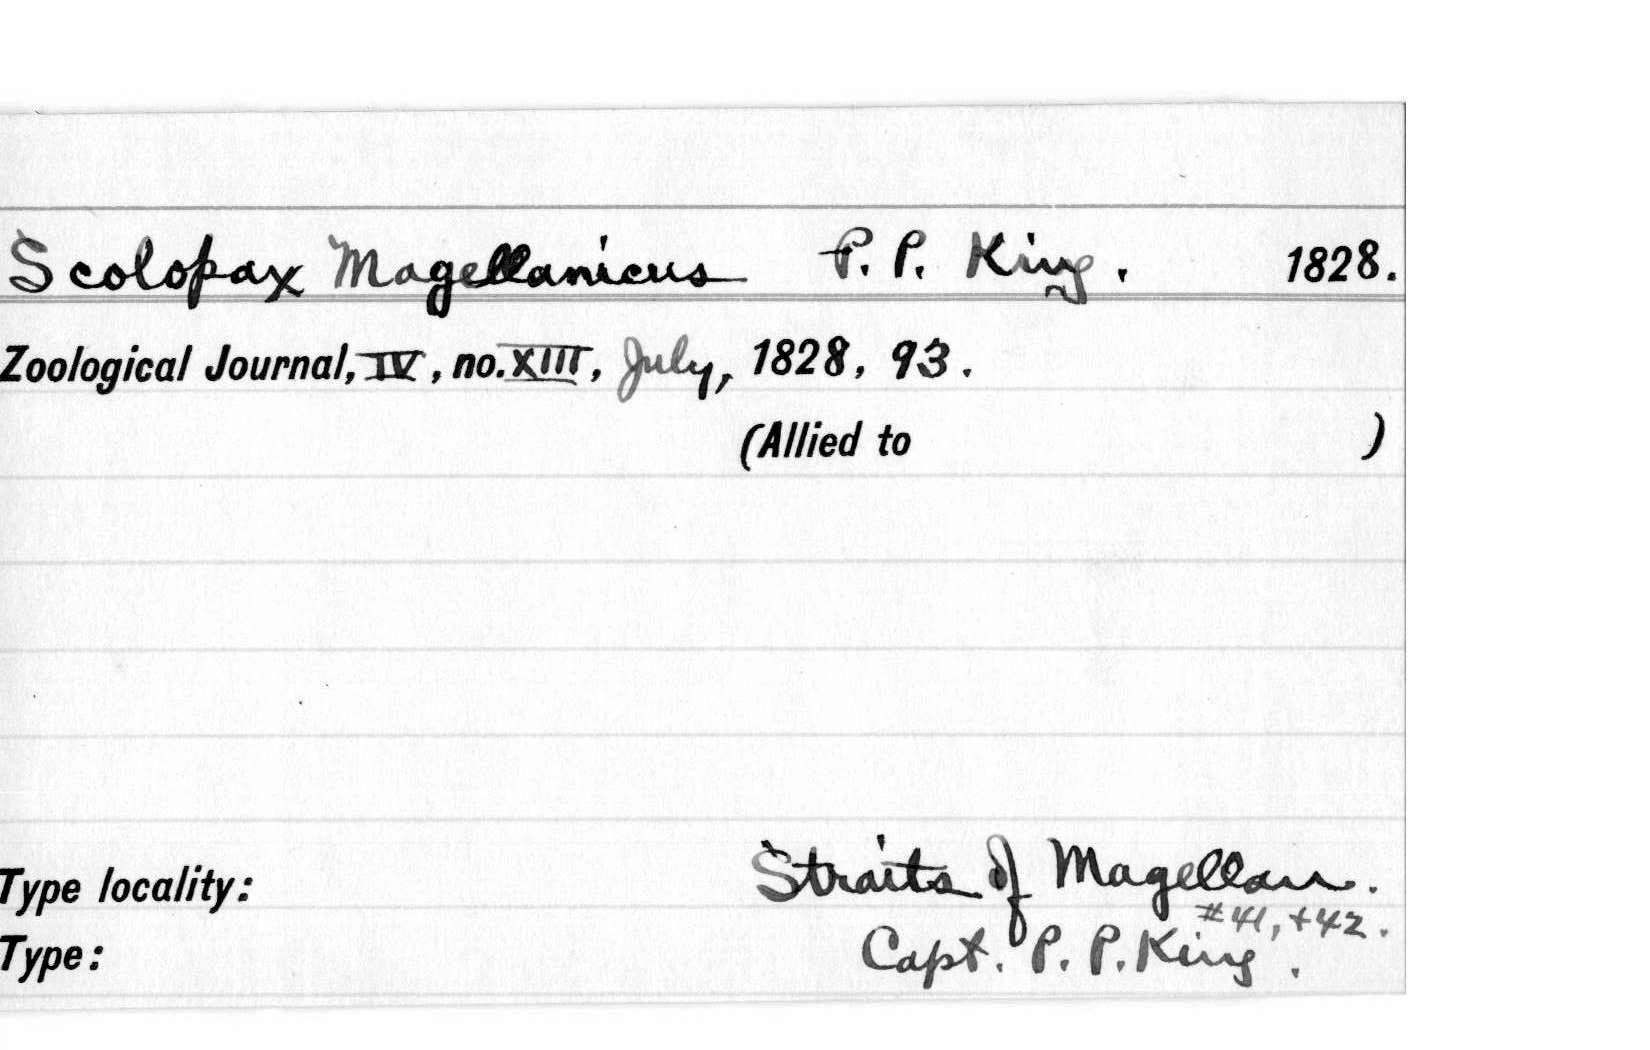 Scolopax Magellanicus P. P. King. 1828.
Zoological Journal, IV, no. XIII, July, 1828, 93.
(Allied to )
Type locality: Straits of Magellan.
#41, +42.
Type: Capt. P. P. King.